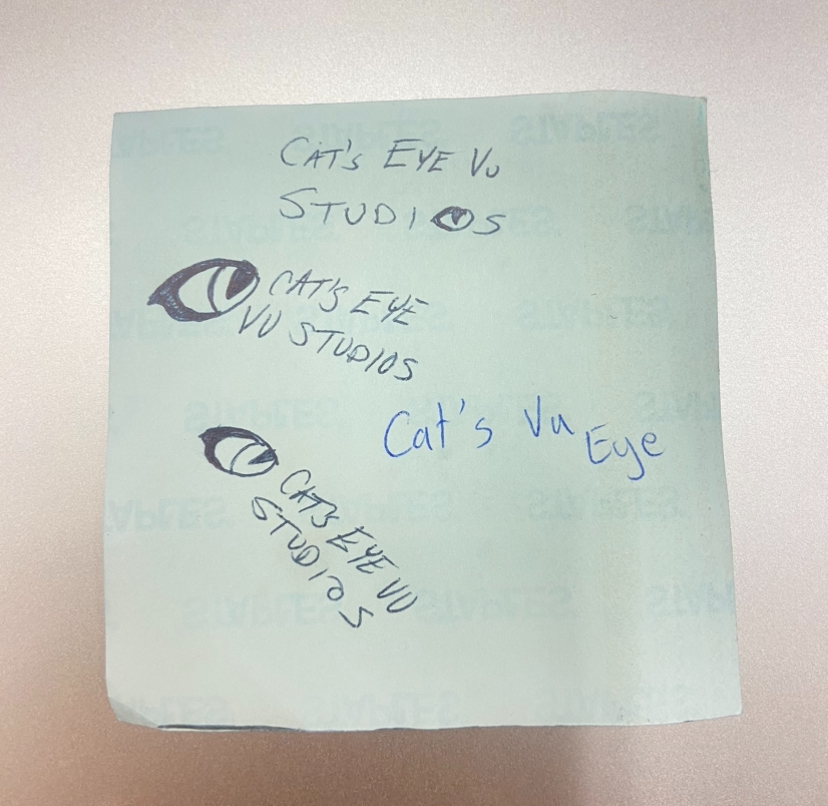 CAT'S EYE VU
STUDIOS
CAT'S EYE
VU STUDIOS
Cat's Vu Eye
CAT'S EYE VU
STUDIOS